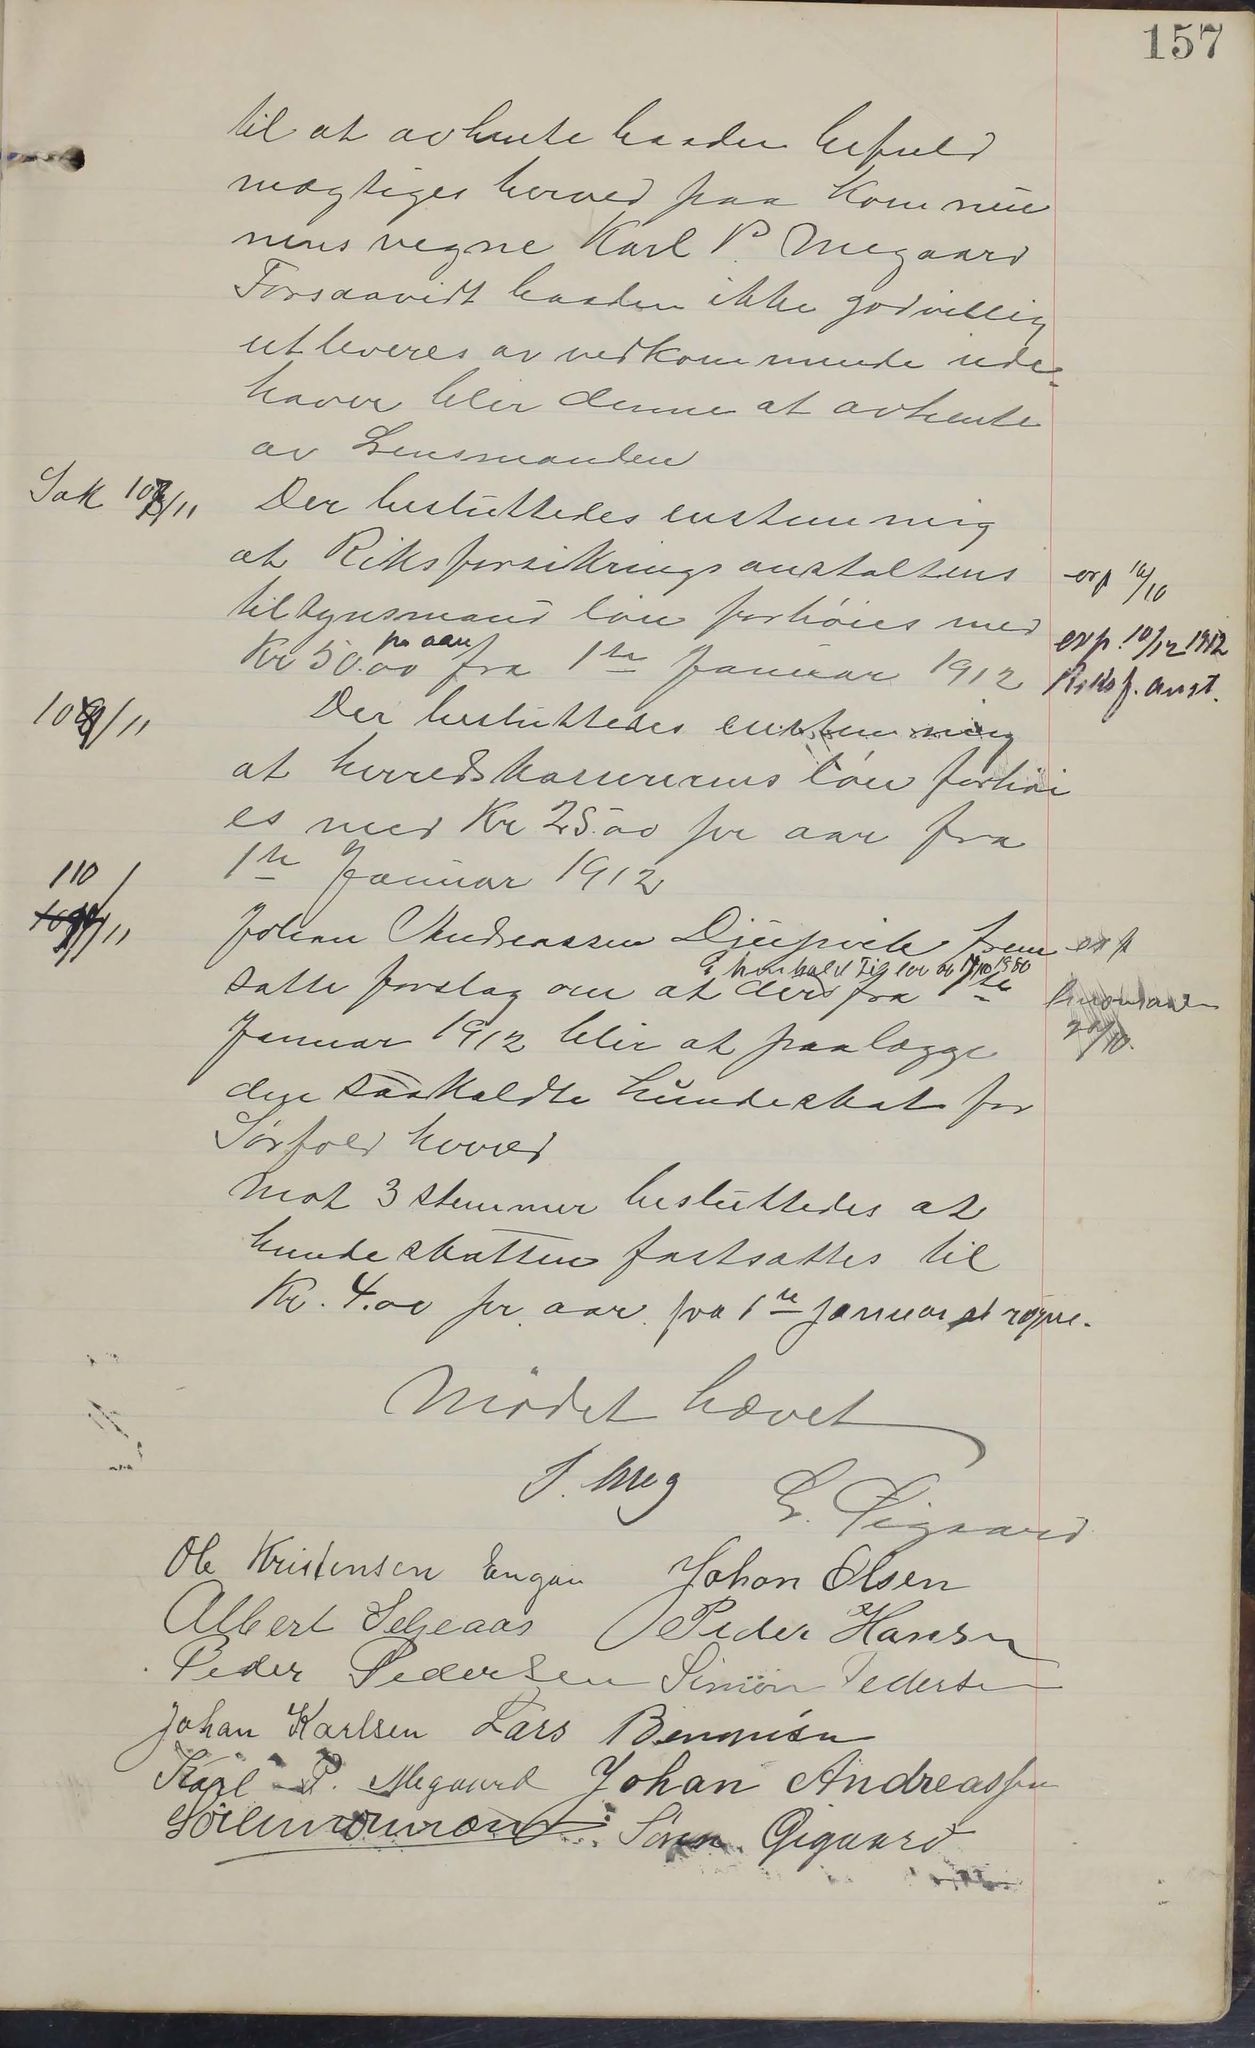 157
til at avhente baaden befuld
mægtiges herved paa Kommu
nens vegne Karl P. Megaard
Forsaavidt baaden ikke godvillig
utleveres av vedkommende inde-
haver blir denne at avhente
av Lensmanden
Sak 108/11 Der besluttedes enstemmig
at Riksforsikringsanstaltens exp 16/10
tilsynsmand løn forhøies med exp. 10/12 1912
pr aar
Kr 50.00 fra 1ste Januar 1912 Riksf. anst.
109/11 Der besluttedes enstemmig
at herredskasererens løn forhøi
es med Kr 25.00 pr aar fra
1ste Januar 1912
110/11 Johan Andreassen Djupvik frem exp
i henhold til lov av
satte forslag om at der fra 1ste lensmand
Januar 1912 blir at paalægge
den saakaldte hundeskat for
Sørfold herred
Mot 3 stemmer besluttedes at
hundeskatten fastsattes til
Kr. 4.00 pr. aar fra 1ste januar at regne.
Mødet hævet
S. Meg E. Øigaard
Ole Kristensen Engan Johan Olsen
Albert Seljeaas Peder Hansen
Peder Pedersen Simon Pedersen
Johan Karlsen Lars
Karl P. Megaard Johan Andreassen
Søren Øigaard